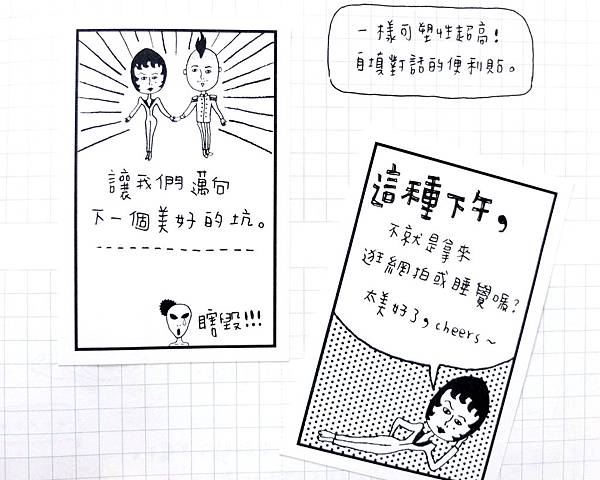 一樣可塑性超高!
自填對話的便利貼。
讓我們邁向
下一個美好的坑。
瞎毀!!!
這種下午,
不就是拿來
逛網拍或睡覺嗎?
太美好了,cheers~